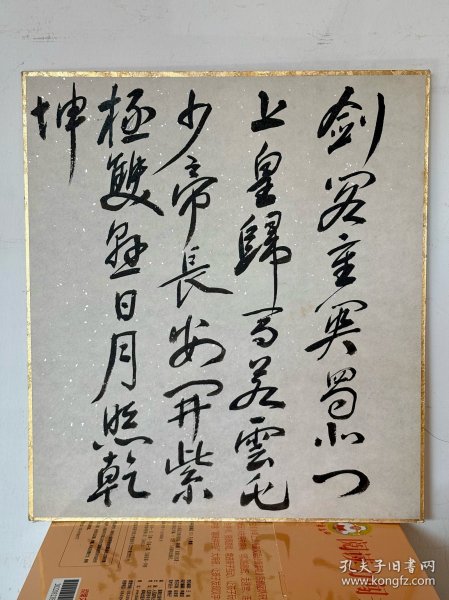 劍閣重關蜀北門
上皇歸馬若雲屯
少帝長安開紫
極雙懸日月照乾
坤
孔夫子旧书网
kongfz.com